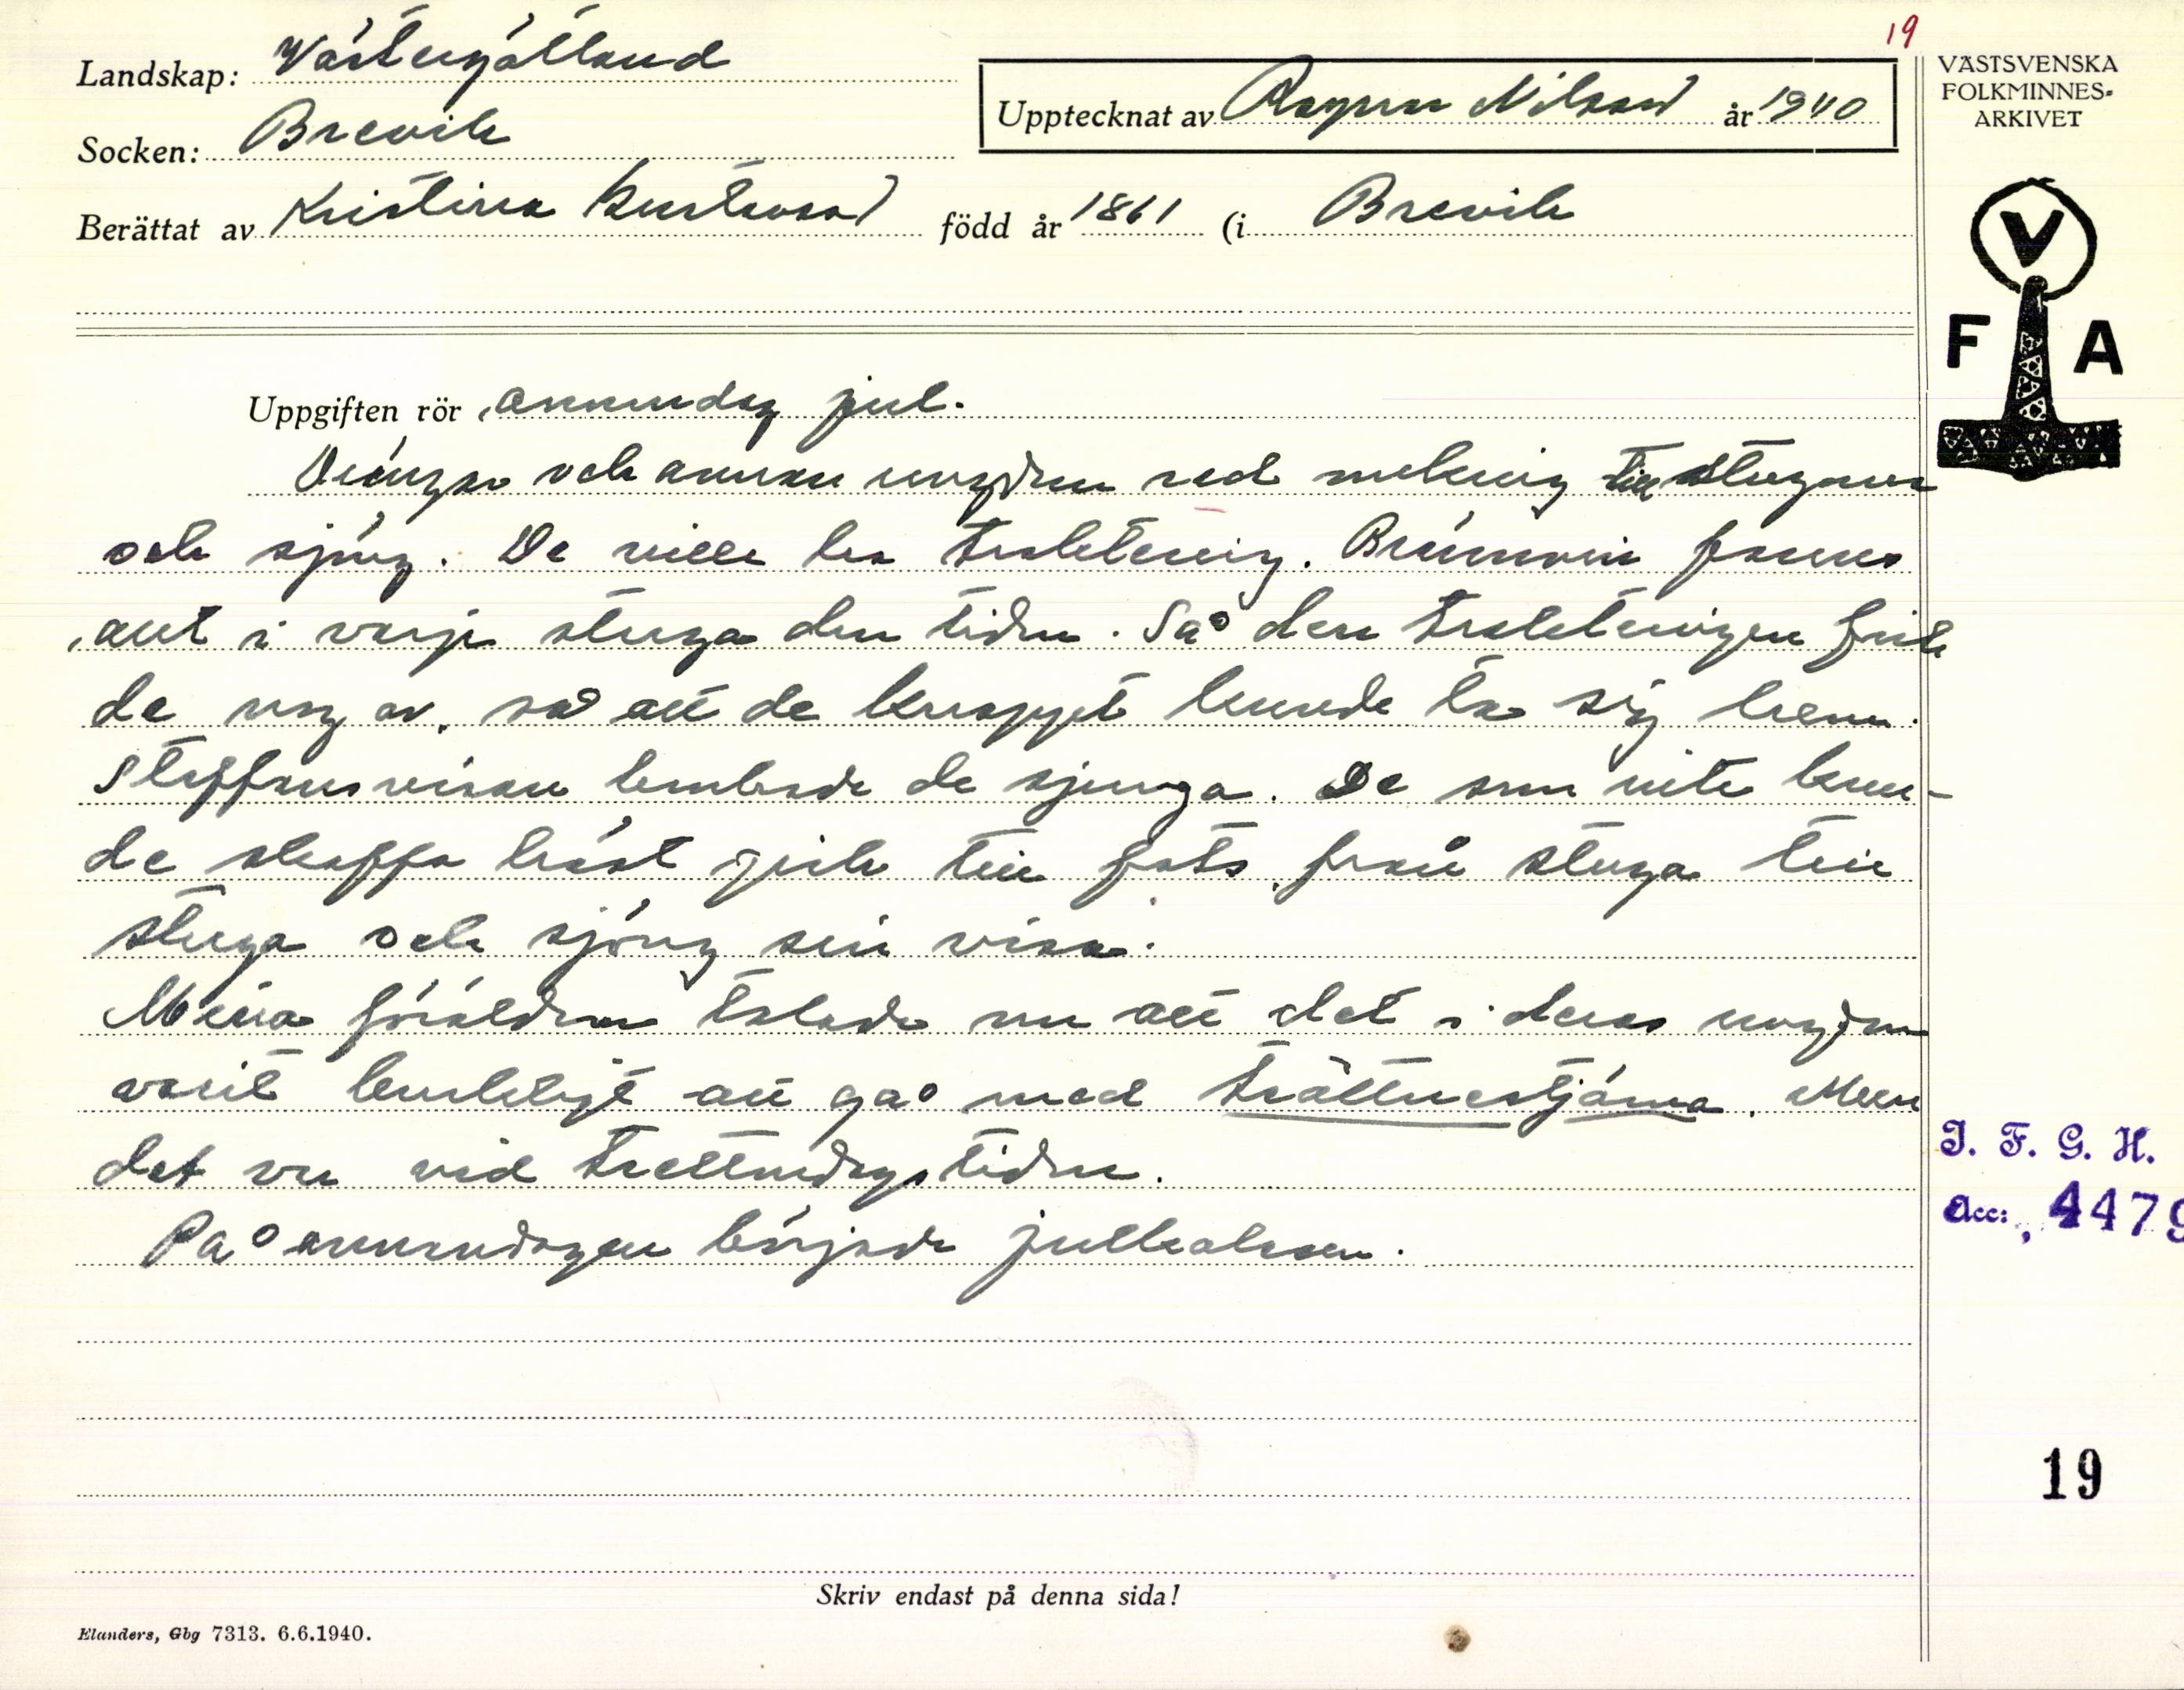 19
Landskap: Västergötland
Socken: Brevik
Berättat av Kristina Gustavson född år 1861 (i Brevik
Upptecknat av Ragnar Nilsson år 1940
VÄSTSVENSKA
FOLKMINNES-
ARKIVET
V
F A
Uppgiften rör annandag jul.
Drängar och annan ungdom red omkring till stugorna
och sjöng. De ville ha traktering. Brännvin fanns
allt i varje stuga den tiden. Så den trakteringen fick
de nog av, så att de knappt kunde ta sig hem.
Staffansvisan brukade de sjunga. De som inte kun-
de skaffa häst gick till fots från stuga till
stuga och sjöng sin visa.
Mina föräldrar talade om att det i deras ungdom
varit brukligt att gå med trättnestjärna. Men
det var vid trettondagstiden.
På annandagen började julkalasen.
I. F. G. H.
Acc: 4479
19
Skriv endast på denna sida!
Elanders, Gbg 7313. 6.6.1940.